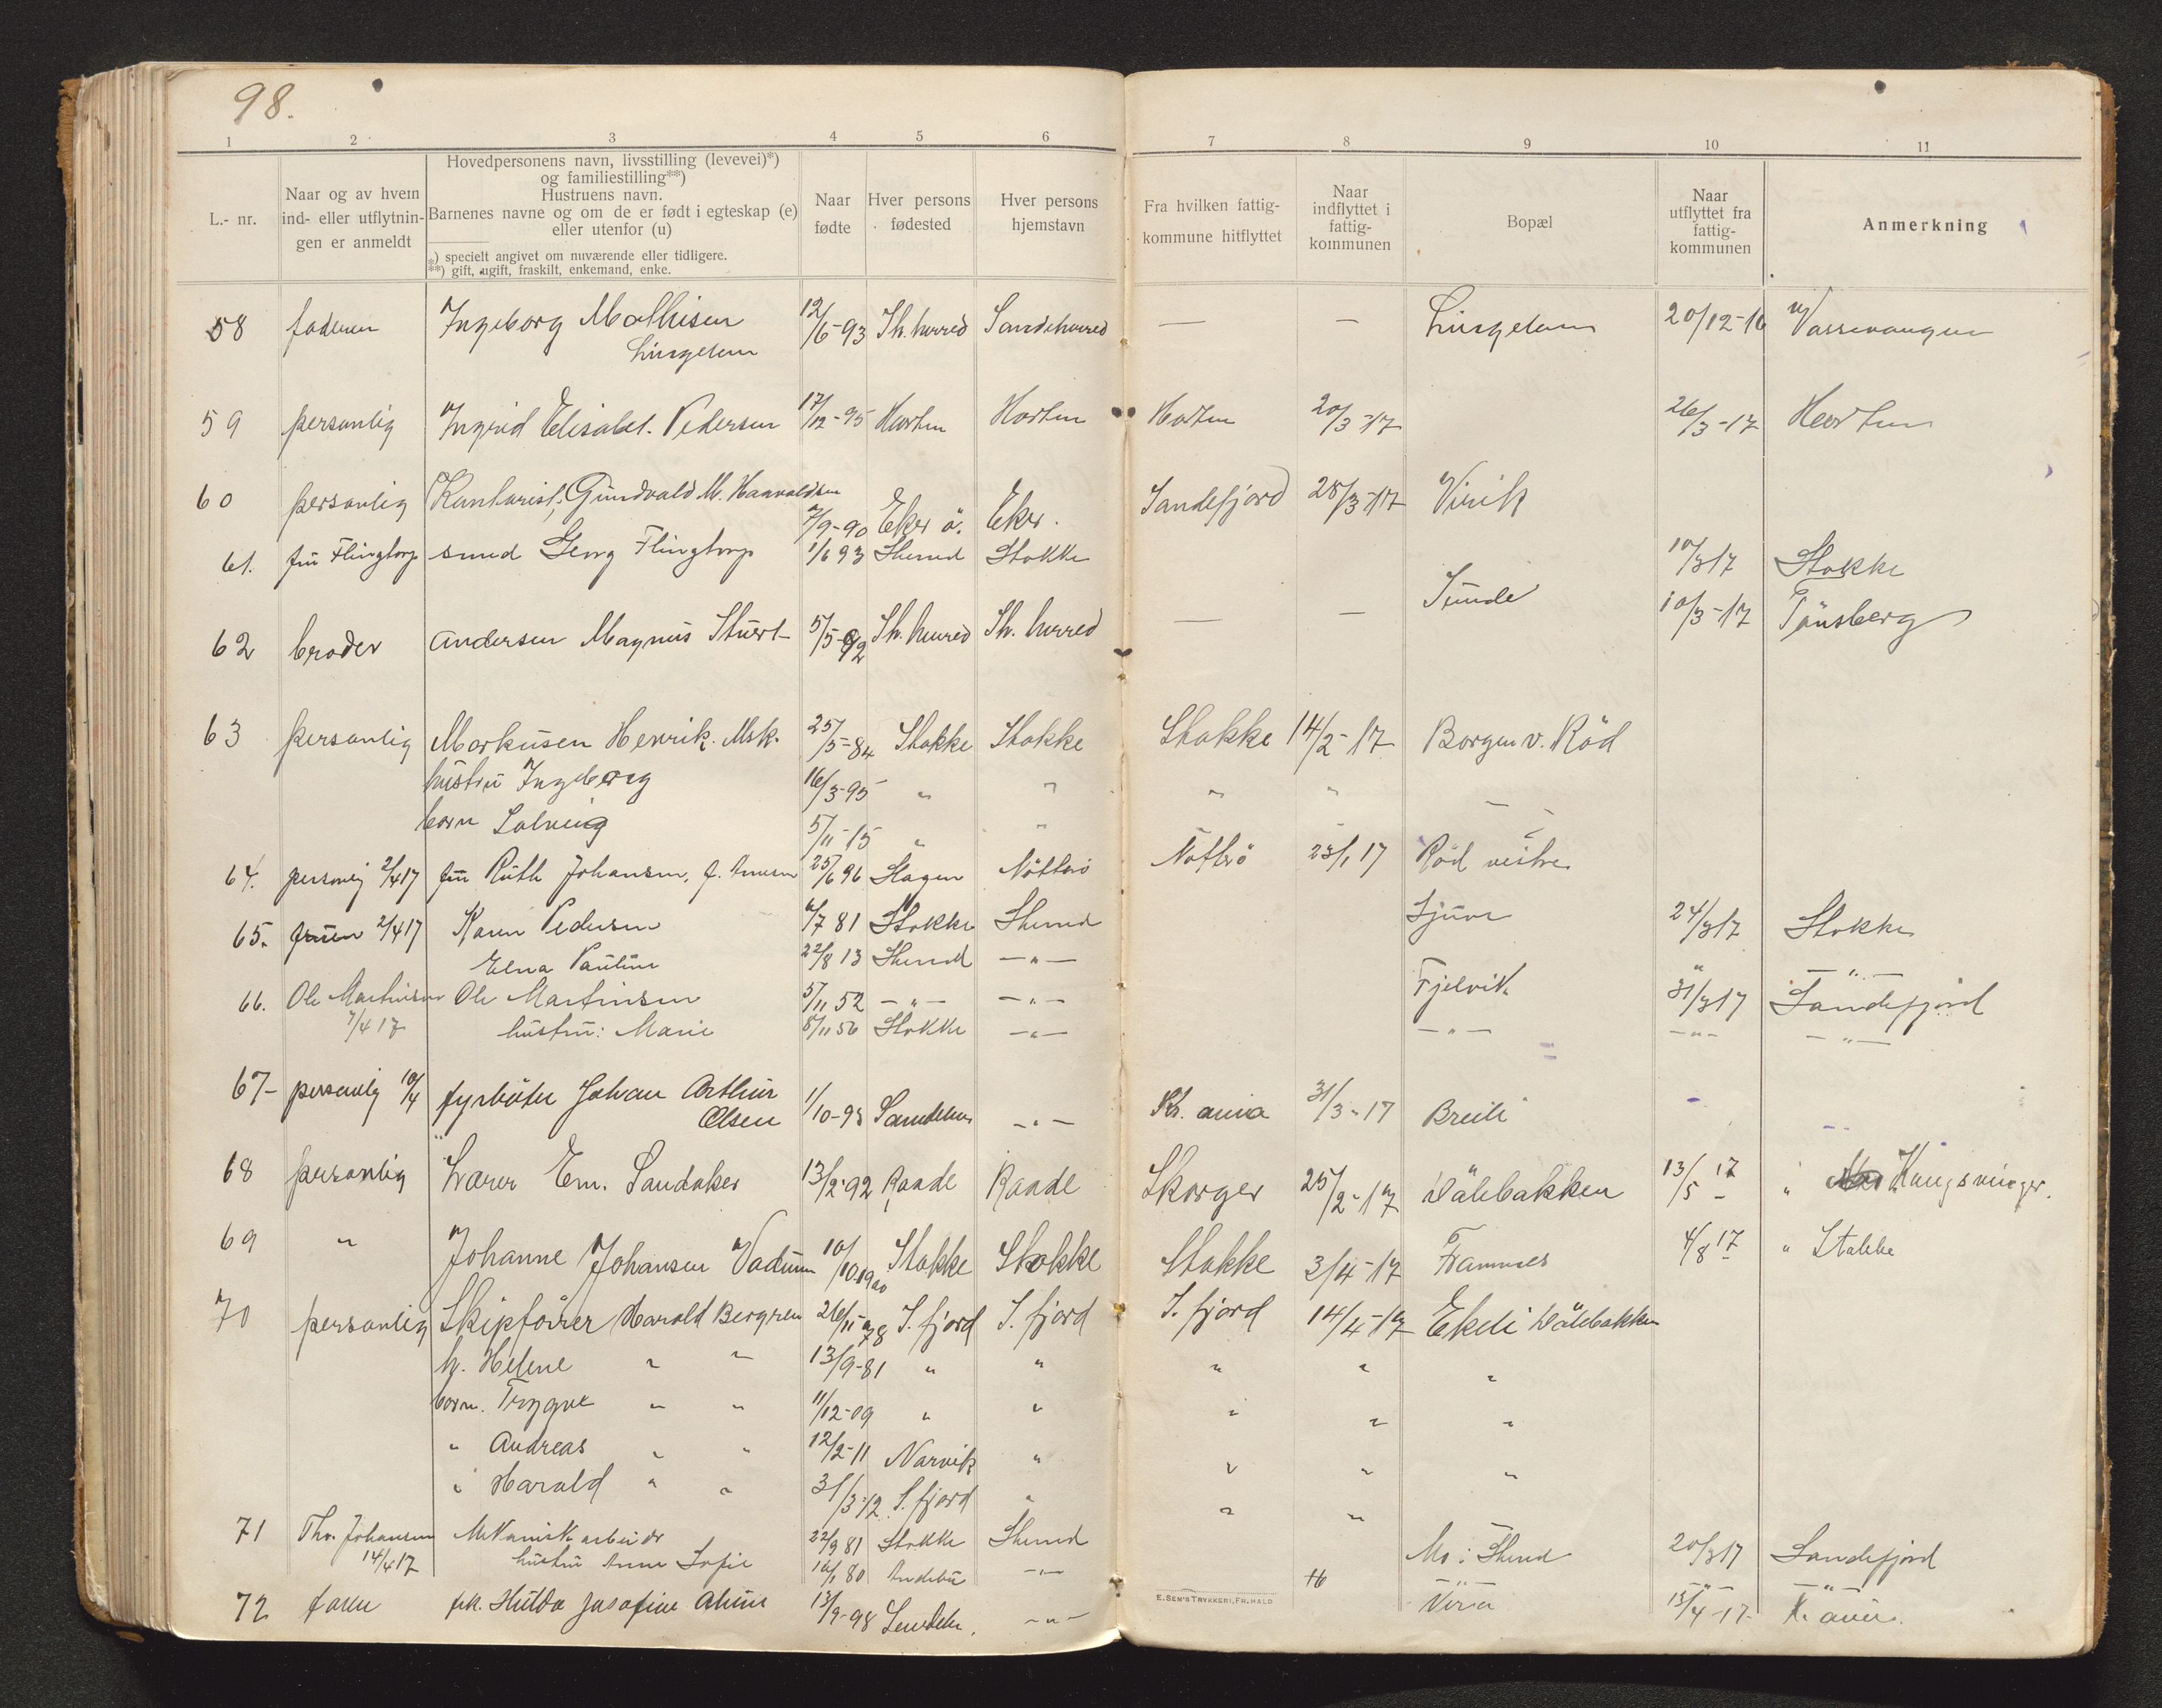 98.
1 2 3 4 5 6 7 8 9 10 11
L.- nr.
Naar og av hvem
ind- eller utflytnin-
gen er anmeldt
Hovedpersonens navn, livsstilling (levevei)*)
og familiestilling**)
Hustruens navn.
Barnenes navne og om de er født i egteskap (e)
eller utenfor (u)
*) specielt angivet om nuværende eller tidligere.
**) gift, ugift, fraskilt, enkemand, enke.
Naar
fødte
Hver persons
fødested
Hver persons
hjemstavn
Fra hvilken fattig-
kommune hitflyttet
Naar
indflyttet i
fattig-
kommunen
Bopæl
Naar
utflyttet fra
fattig-
kommunen
Anmerkning
58 faderen Ingeborg Mathisen 12/6-93 Sh. herred Sandeherred — — 20/12-16
59 personlig Ingrid Elisabet. Pedersen 17/12-95 Horten Horten Horten 20/3-17 26/3-17 Horten
60 personlig Kontorist, Gundvald M. Haavaldsen
7/9-90 Eker ö. Eker. Sandefjord 28/3-17 Virik
61. fru Flingtorp smed Georg Flingtorp 1/6 93 Sherred Stokke 10/3 17 Stokke
62 broder Andersen Magnus Stuert 5/5-92 Sh. herred Sh. herred — — Sunde 10/3-17 Tönsberg
63 personlig Markusen Henrik. Msk. 25/5-84 Stokke Stokke Stokke 14/2-17 Borgen v. Röd
hustru Ingeborg 16/3-95 " " " " —
barn Solveig 5/11-15 " "
64. personlig 2/4 17 fru Ruth Johansen, f. 25/6 96 Slagen Nötterö Nötterö 23/1 17 Röd vestre
65. fruen 2/4 17 Karen Pedersen 6/7 81 Stokke Sherred 24/3 17 Stokke
Elna Pauline 22/8 13 Sherred —"— " —"—
66. Ole Martinsen Ole Martinsen 5/11 52 —"— —"— Fjelvik 31/3 17 Sandefjord
7/4 17 hustru: Marie 8/11 56 Stokke —"— —"— —"— —"—
67- personlig 10/4 fyrböter Johan Arthur
Olsen 1/10-93 —"— Kr. ania 31/3-17 Breili
68 personlig Lærer Em. Sandaker 13/2-92 Raade Raade Skorger 25/2-17 Dälebakken 13/5-17 " Kongsvinger.
69 " Johanne Johansen Vadum 10/10 1900 Stokke Stokke Stokke 3/4-17 Framnes 4/8 17 " Stokke
70 personlig Skipsförer Harald Bergren 26/11-78 S. fjord S. fjord S. fjord 14/4-17 Ekeli Dälebakken
h. Helene " " 13/9-81 " " " " "
barn. Trygve " " 11/12-09 " " " " "
" Andreas " " 12/2-11 Narvik " " " "
" Harald " " 31/3-12 S. fjord " " "
71 Thv. Johansen Mekanisk arbeider 22/9 81 Stokke Sherred Mo i Sherred 20/3 17 Sandefjord
14/4 17 hustru Anne Sofie 16/1 80 Andebu —"— —"— —"— —"—
72 faren frk. Hulda Josefine 13/9-98 —"— 13/4-17
E. SEM'S TRYKKERI, FR.HALD